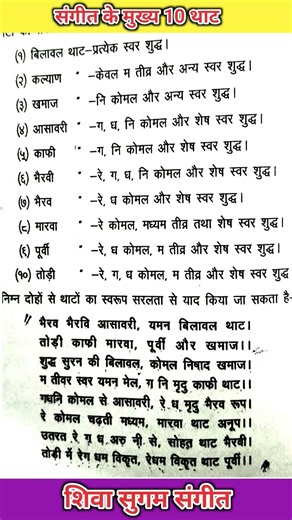 संगीत के मुख्य 10 थाट
(१) बिलावल थाट–प्रत्येक स्वर शुद्ध।
(२) कल्याण –केवल म तीव्र और अन्य स्वर शुद्ध।
(३) खमाज –नि कोमल और अन्य स्वर शुद्ध।
(४) आसावरी –ग, ध, नि कोमल और शेष स्वर शुद्ध।
(५) काफी –ग, नि कोमल और शेष स्वर शुद्ध।
(६) भैरवी –रे, ग, ध, नि कोमल और शेष स्वर शुद्ध।
(७) भैरव –रे, ध कोमल और शेष स्वर शुद्ध।
(८) मारवा –रे कोमल, मध्यम तीव्र तथा शेष स्वर शुद्ध।
(६) पूर्वी –रे, ध कोमल, म तीव्र और शेष स्वर शुद्ध।
(१०) तोड़ी –रे, ग, ध कोमल, म तीव्र और शेष स्वर शुद्ध
निम्न दोहों से थाटों का स्वरूप सरलता से याद किया जा सकता है-
" भैरव भैरवि आसावरी, यमन बिलावल थाट।
तोड़ी काफी मारवा, पूर्वी और खमाज।।
शुद्ध सुरन की बिलावल, कोमल निषाद खमाज।
म तीवर स्वर यमन मेल, ग नि मृदु काफी थाट।।
गधनि कोमल से आसावरी, रे ध मृदु भैरव रूप।
रे कोमल चढ़ती मध्यम, मारवा थाट अनूप।।
उतरत रे ग ध अरु नी से, सोहत थाट भैरवी।
तोड़ी में रेग धम विकृत, रेधम विकृत थाट पूर्वी।।
शिवा सुगम संगीत